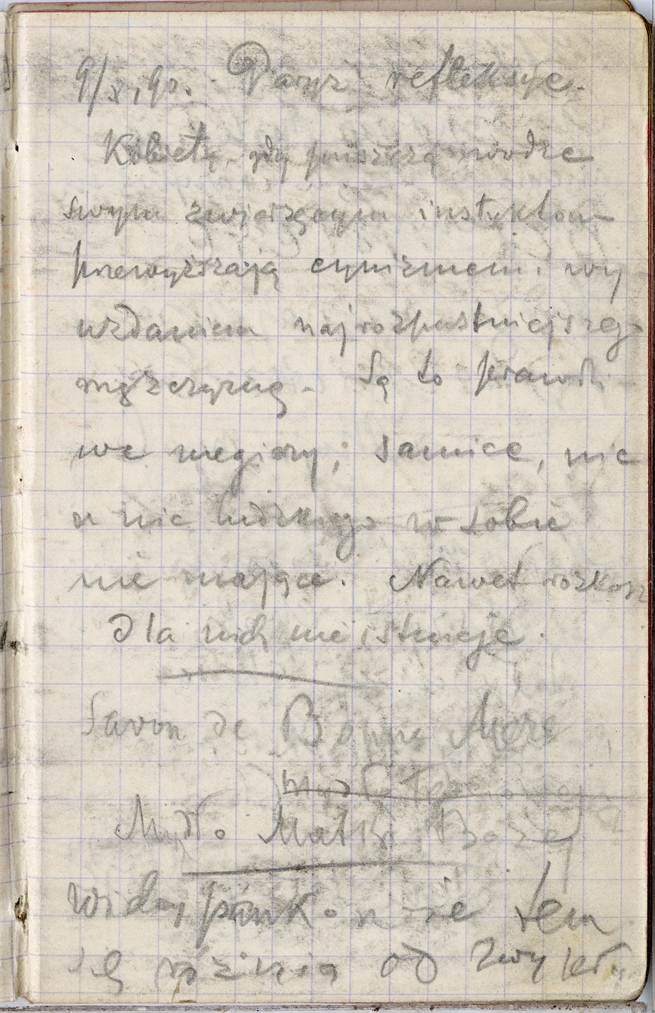 9/X, 90. Paryż refleksye.
Kobiety, gdy puszczą wodze
swym zwierzęcym instyktom
przewyższają cynizmem i wy
uzdaniem najrozpustniejszego
mężczyznę. Są to prawdzi
we megiery; samice, nic
a nic ludzkiego w sobie
nie mające. Nawet rozkosz
dla nich nie istnieje.
Savon de Bonne Mère
Mydło Matki Bożej
tem
się różnią od